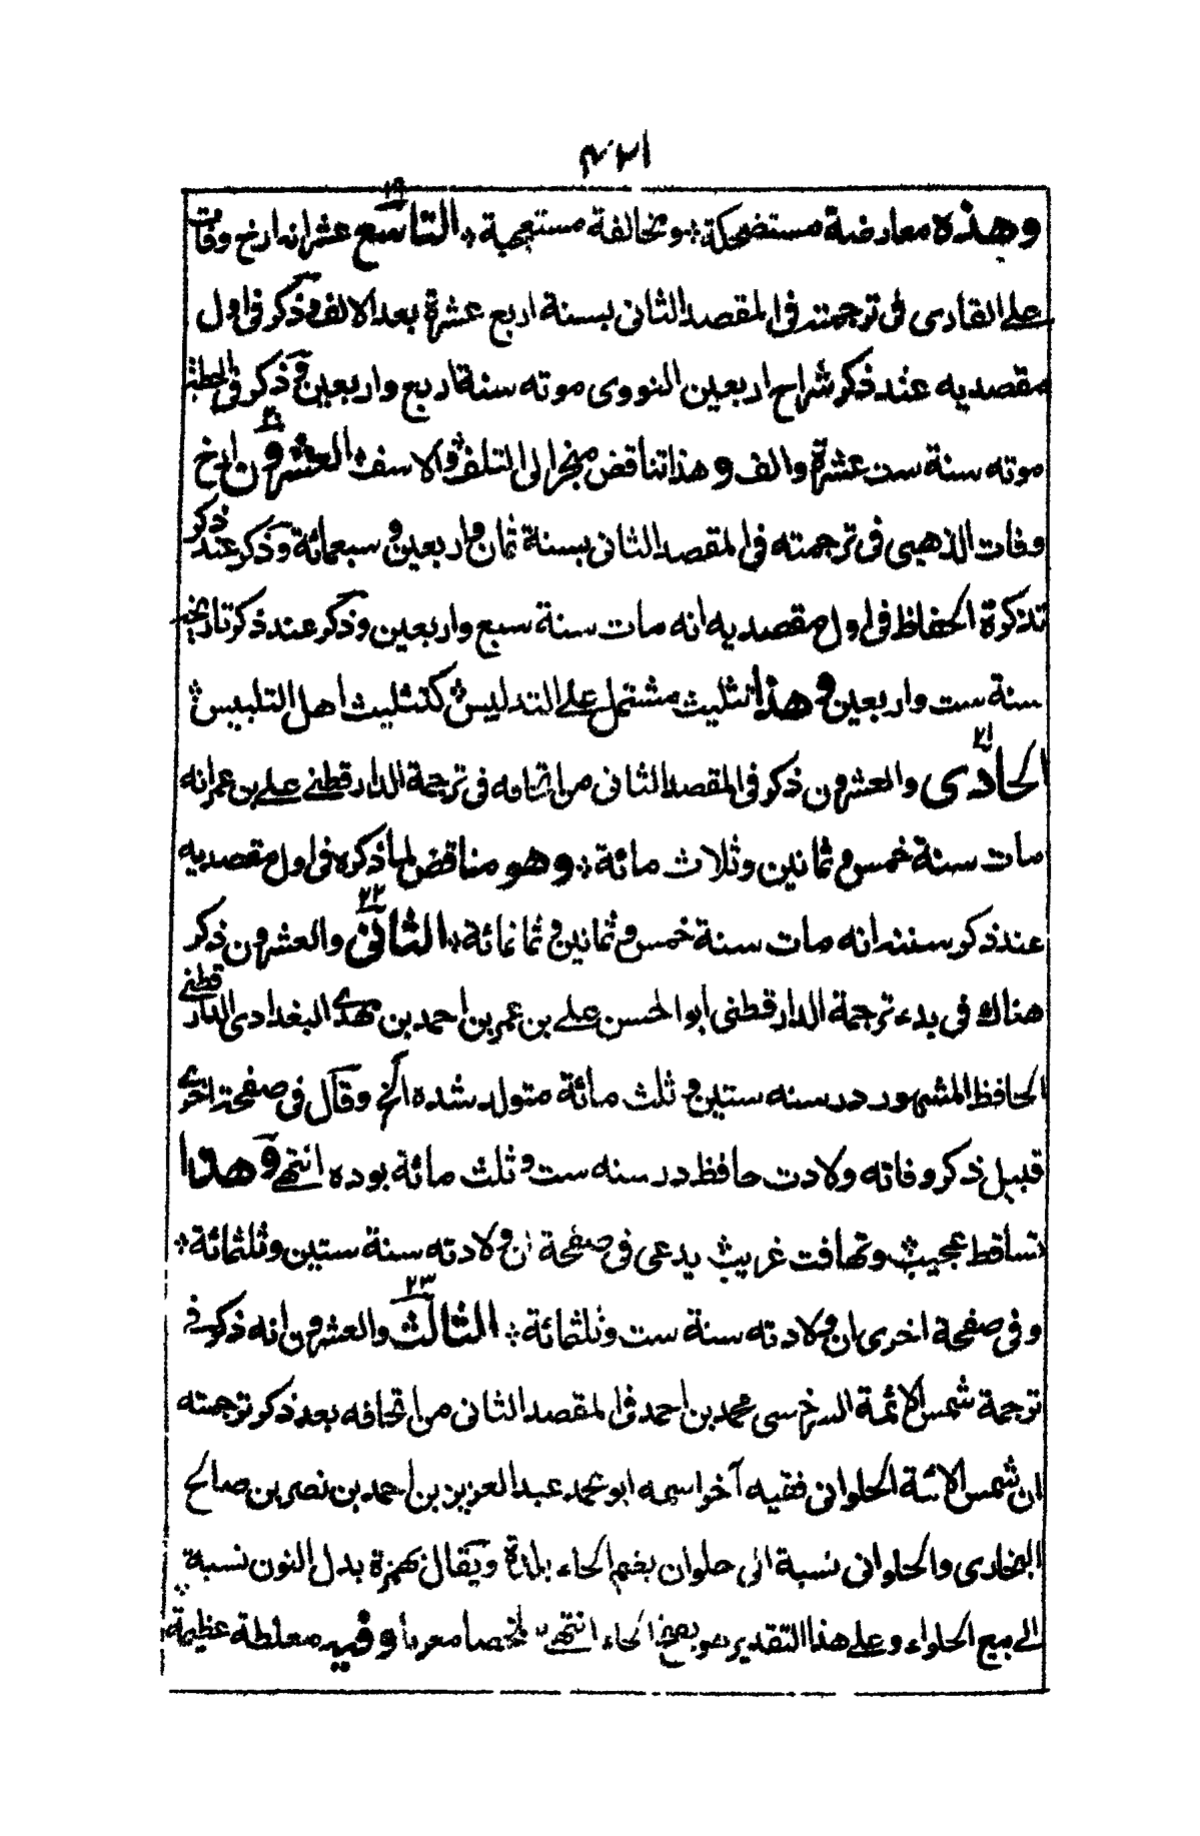 ٤٢١
وهذه معارضة مستضحكة ٭ ومخالفة مستعجبة ٭ التاسع ١٩ عشر انه ارخ وفات
علي القارى فى ترجمته فى المقصد الثانى بسنة اربع عشرة بعد الالف وذكر فى اول
مقصديه عند ذكر شراح اربعين النووى موته سنة اربع واربعين وذكر فى
موته سنة ست عشرة والف وهذا تناقض منجر الى التلف والاسف ٭ العشرون ٢٠ ارخ
وفات الذهبى فى ترجمته فى المقصد الثانى بسنة ثمان واربعين وسبعمائة وذكر عند ذكر
تذكرة الحفاظ فى اول مقصديه انه مات سنة سبع واربعين وذكر عند ذكر تاريخه
سنة ست واربعين وهذا تثليث مشتمل على التدليس كتثليث اهل التلبيس ٭
الحادى ٢١ والعشرون ذكر فى المقصد الثانى من اتحافه فى ترجمة الدارقطنى علي بن عمر انه
مات سنة خمس وثمانين وثلاث مائة ٭ وهو مناقض لما ذكره فى اول مقصديه
عند ذكر سننه انه مات سنة خمس وثمانين وثمانمائة ٭ الثانى ٢٢ والعشرون ذكر
هناك فى بدء ترجمة الدارقطنى ابو الحسن علي بن عمر بن احمد بن مهدى البغدادى الدارقطني
الحافظ المشهور در سنه ستين و ثلث مائة متولد شده الخ وقال فى صفحة اخرى
قبيل ذكر وفاته ولادت حافظ در سنه ست و ثلث مائة بوده انتهى وهذا
تساقط عجيب وتهافت غريب يدعى فى صفحة ان ولادته سنة ستين وثلثمائة ٭
وفى صفحة اخرى ان ولادته سنة ست وثلثمائة ٭ الثالث ٢٣ والعشرون انه ذكر فى
ترجمة شمس الائمة السرخسى محمد بن احمد فى المقصد الثانى من اتحافه بعد ذكر ترجمته
ان شمس الائمة الحلوانى فقيه آخر اسمه ابو محمد عبد العزيز بن احمد بن نصر بن صالح
البخارى والحلوانى نسبة الى حلوان بضم الحاء بلدة ويقال بهمزة بدل النون نسبة
الى بيع الحلواء وعلى هذا التقدير هو بفتح الحاء انتهى ملخصا معربا وفيه مغلطة عظيمة